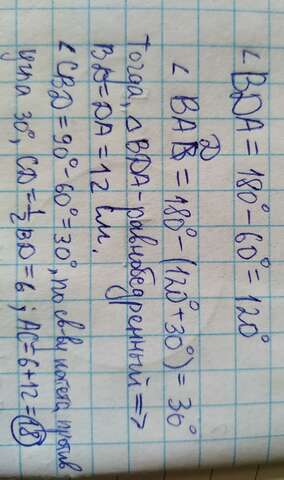 ∠BDA = 180° - 60° = 120°
∠BAD = 180° - (120° + 30°) = 30°
Тогда, △BDA - равнобедренный =>
BD = DA = 12 см.
∠CBD = 90° - 60° = 30°, по св-ву катета, против
угла 30°, CD = ½ BD = 6 ; AC = 6 + 12 = 18